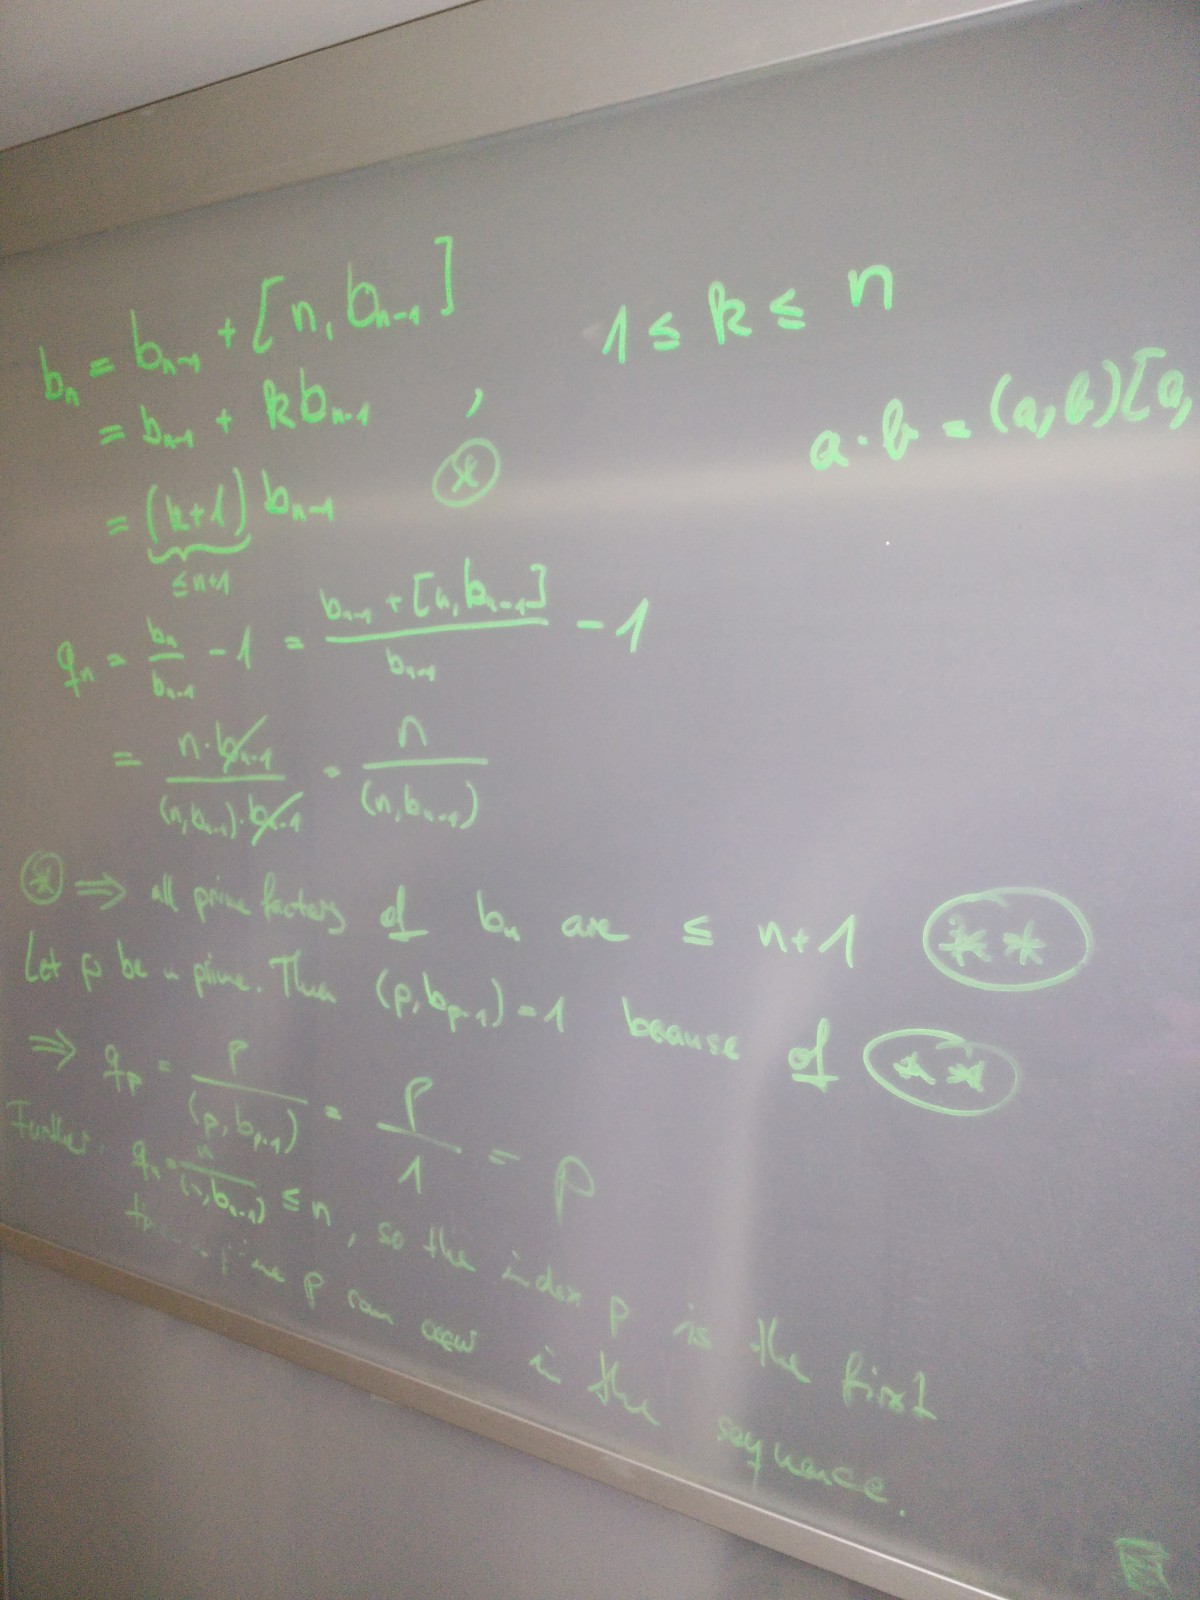 bₙ = bₙ₋₁ + [n, bₙ₋₁]
= bₙ₋₁ + kbₙ₋₁ , 1 ≤ k ≤ n
a·b = (a,b)[a,
= (k+1) bₙ₋₁ (*)
≤ n+1
qₙ = bₙ/bₙ₋₁ - 1 = (bₙ₋₁ + [n, bₙ₋₁])/bₙ₋₁ - 1
= n·bₙ₋₁/((n,bₙ₋₁)·bₙ₋₁) = n/(n,bₙ₋₁)
(*) ⇒ all prime factors of bₙ are ≤ n+1 (**)
Let p be a prime. Then (p, bₚ₋₁) = 1 because of (**)
⇒ qₚ = p/(p, bₚ₋₁) = p/1 = p
Further: qₙ = n/(n,bₙ₋₁) ≤ n, so the index p is the first
prime p can occur in the sequence.